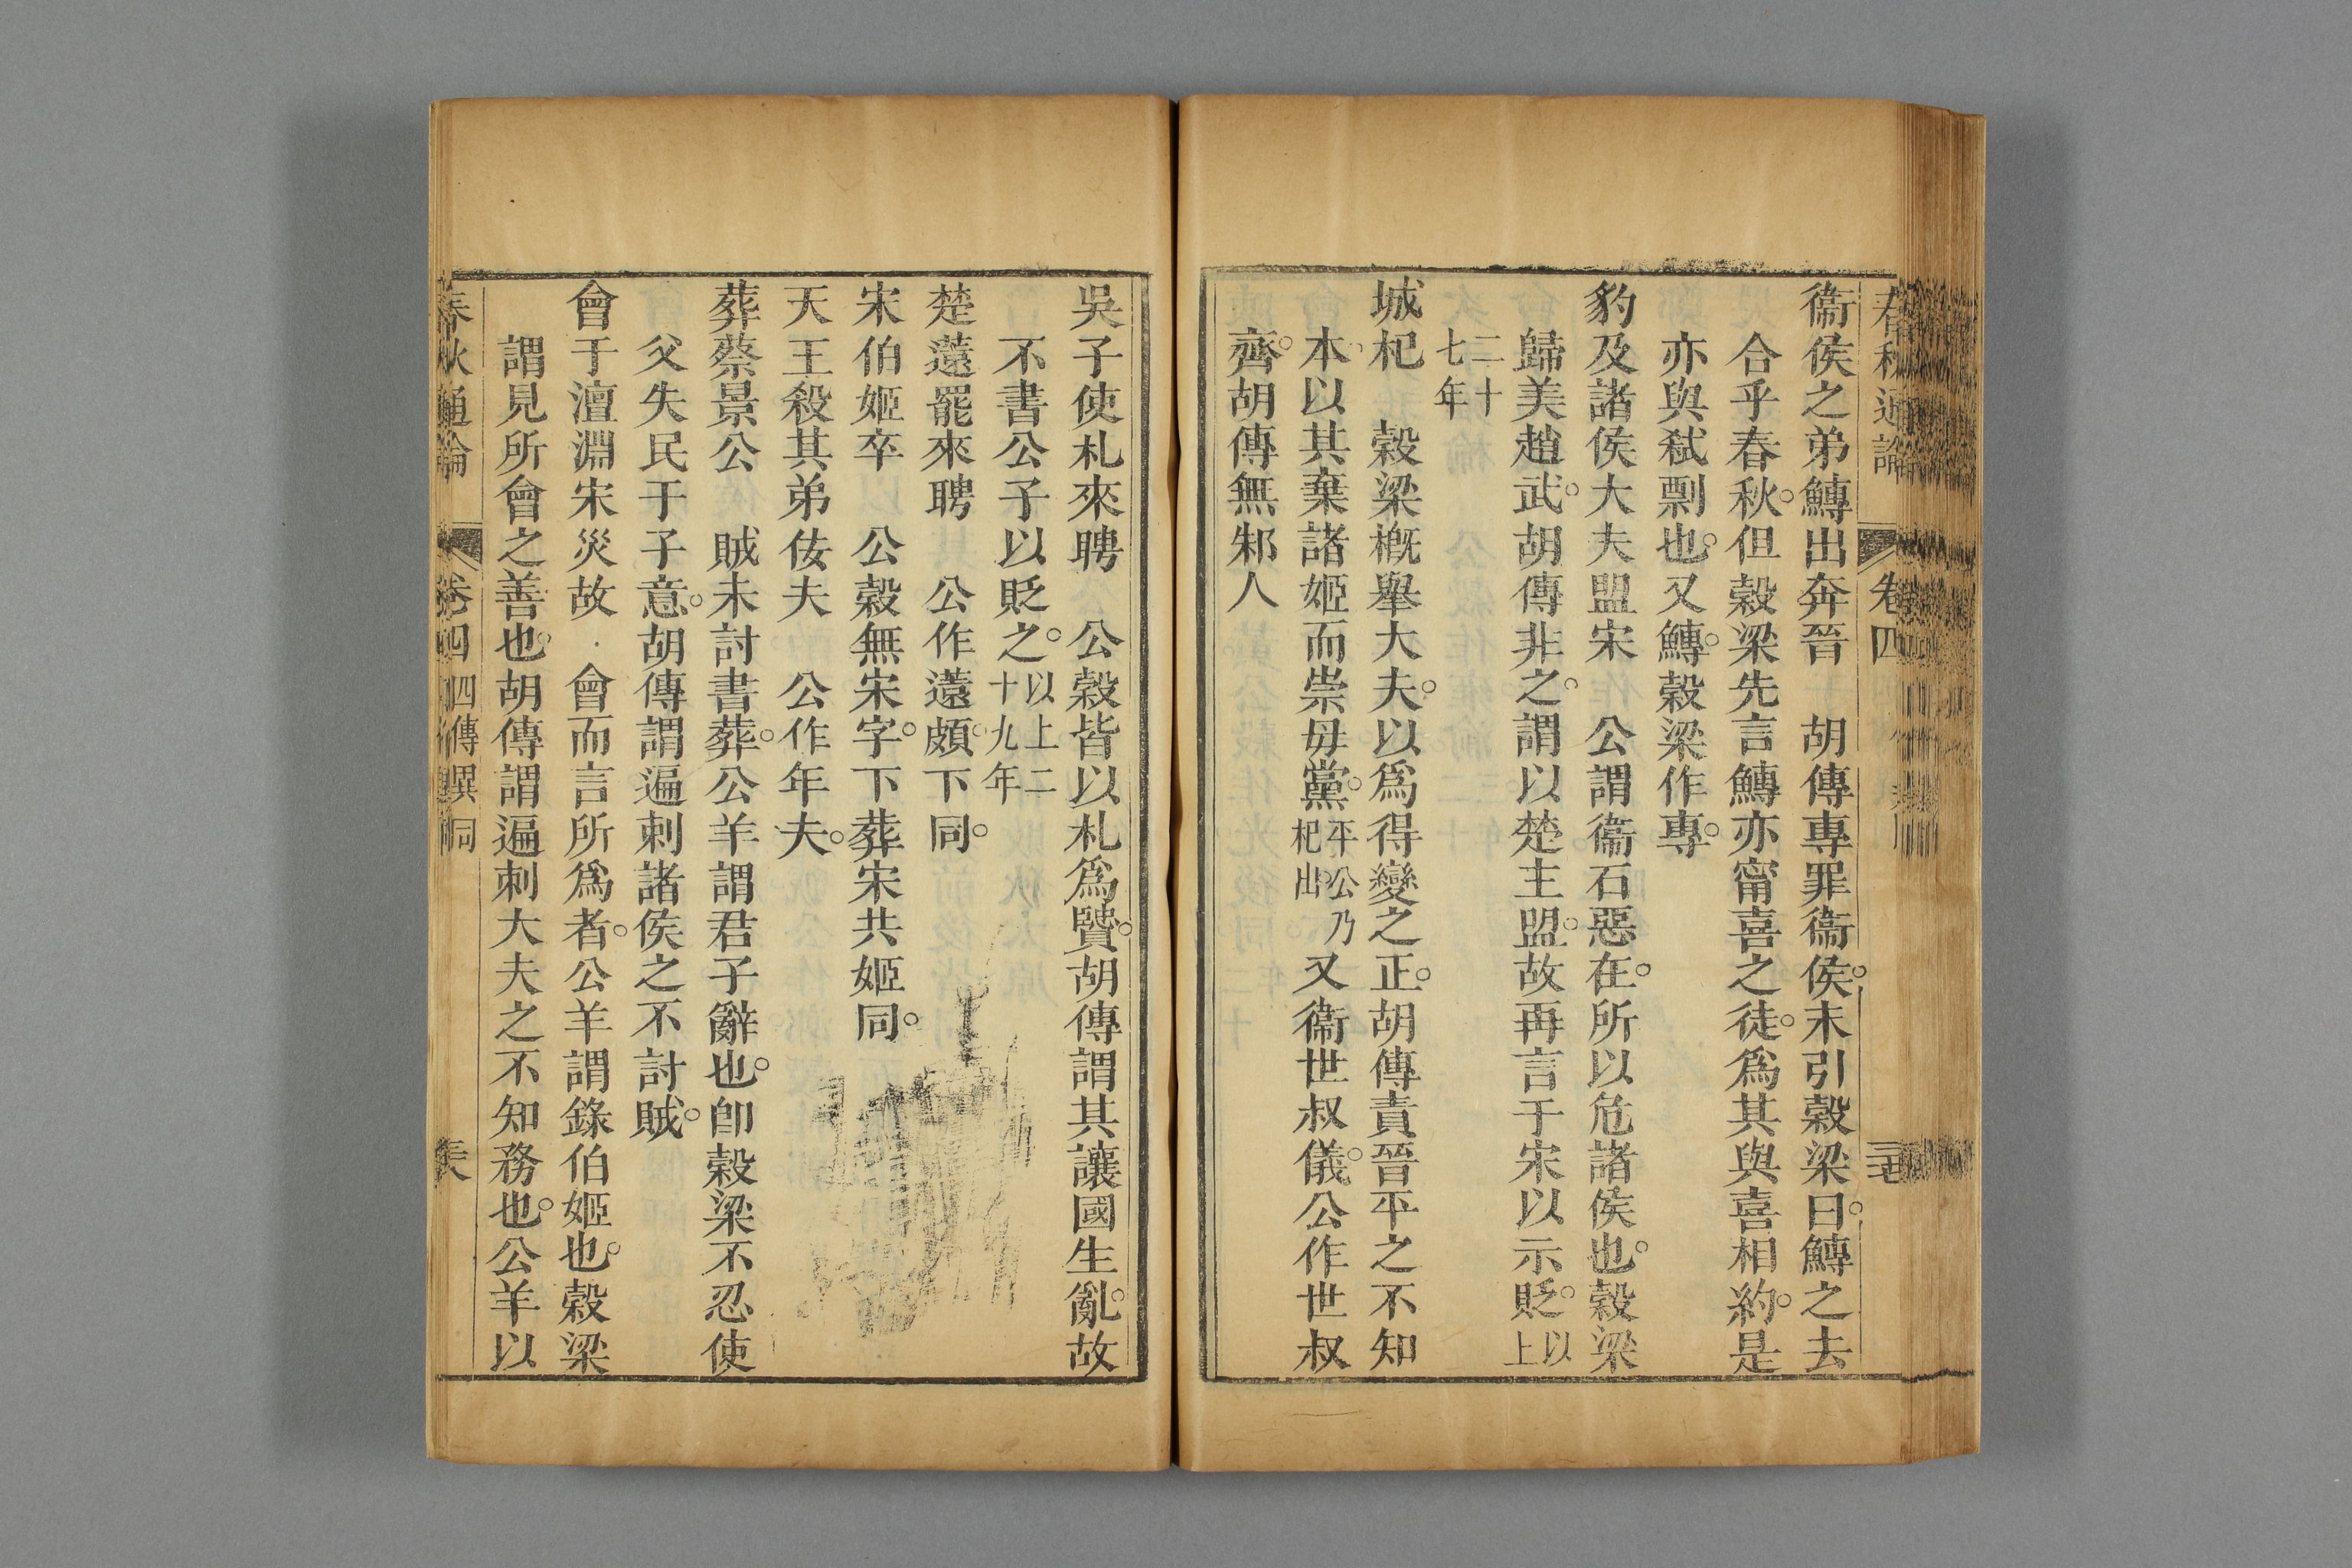 春秋通論 卷四
衞侯之弟鱄出奔晉 胡傳專罪衞侯。末引穀梁曰。鱄之去
合乎春秋。但穀梁先言鱄亦甯喜之徒。爲其與喜相約。是
亦與弑剽也。又鱄。穀梁作專。
豹及諸侯大夫盟宋 公謂衞石惡在。所以危諸侯也。穀梁
歸美趙武。胡傳非之。謂以楚主盟。故再言于宋以示貶。以上
二十七年
城杞 穀梁槪舉大夫。以爲得變之正。胡傳責晉平之不知
本、以其棄諸姬而崇母黨。平公乃杞出 又衞世叔儀。公作世叔
齊。胡傳無邾人
吳子使札來聘 公穀皆以札爲賢。胡傳謂其讓國生亂。故
不書公子以貶之。以上二十九年
楚薳罷來聘 公作薳頗。下同。
宋伯姬卒 公穀無宋字。下葬宋共姬同。
天王殺其弟佞夫 公作年夫。
葬蔡景公 賊未討書葬。公羊謂君子辭也。卽穀梁不忍使
父失民于子意。胡傳謂遍刺諸侯之不討賊。
會于澶淵宋災故 會而言所爲者。公羊謂錄伯姬也。穀梁
謂見所會之善也。胡傳謂遍刺大夫之不知務也。公羊以
春秋通論 卷四 四傳異同